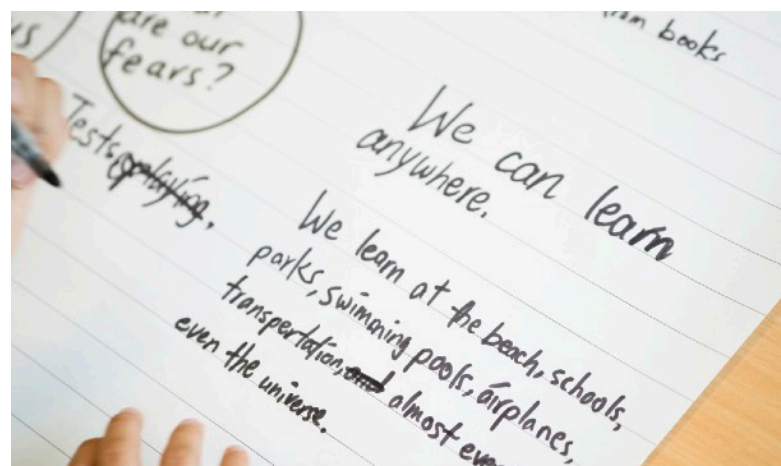 are our
fears?
Tests,
from books
We can learn
anywhere.
We learn at the beach, schools,
parks, swimming pools, airplanes,
transpertation, almost
even the universe.